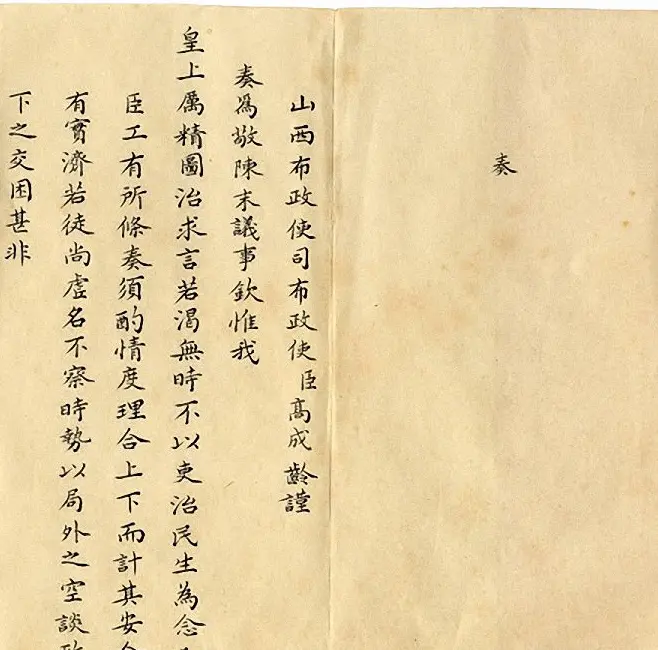 奏
山西布政使司布政使臣高成齡謹
奏爲敬陳末議事欽惟我
皇上厲精圖治求言若渴無時不以吏治民生為念
臣工有所條奏須酌情度理合上下而計其安
有實濟若徒尚虛名不察時勢以局外之空談
下之交困甚非